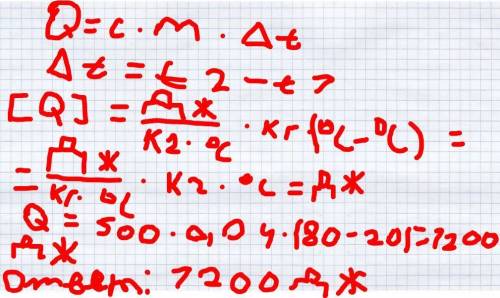 Q = c · m · Δt
Δt = t2 - t1
[Q] = Дж / кг · °C · кг (°C - °C) =
= Дж / кг · °C · кг · °C = Дж
Q = 500 · 0,04 · (80 - 20) = 1200
Дж
Ответ: 1200 Дж